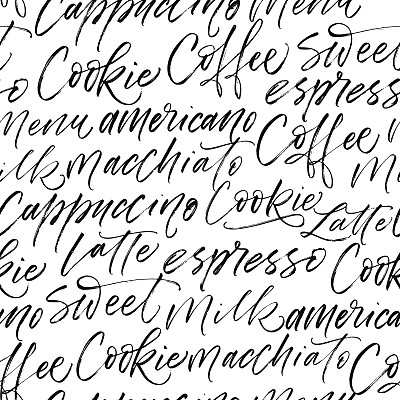 Cappuccino Menu
Cookie Coffee Sweet
espress
Menu americano Coffee
ilk macchiato
Cappuccino Cookie Latte
kie latte espresso Cook
no Sweet Milk america
ffee Cookie macchiato Co